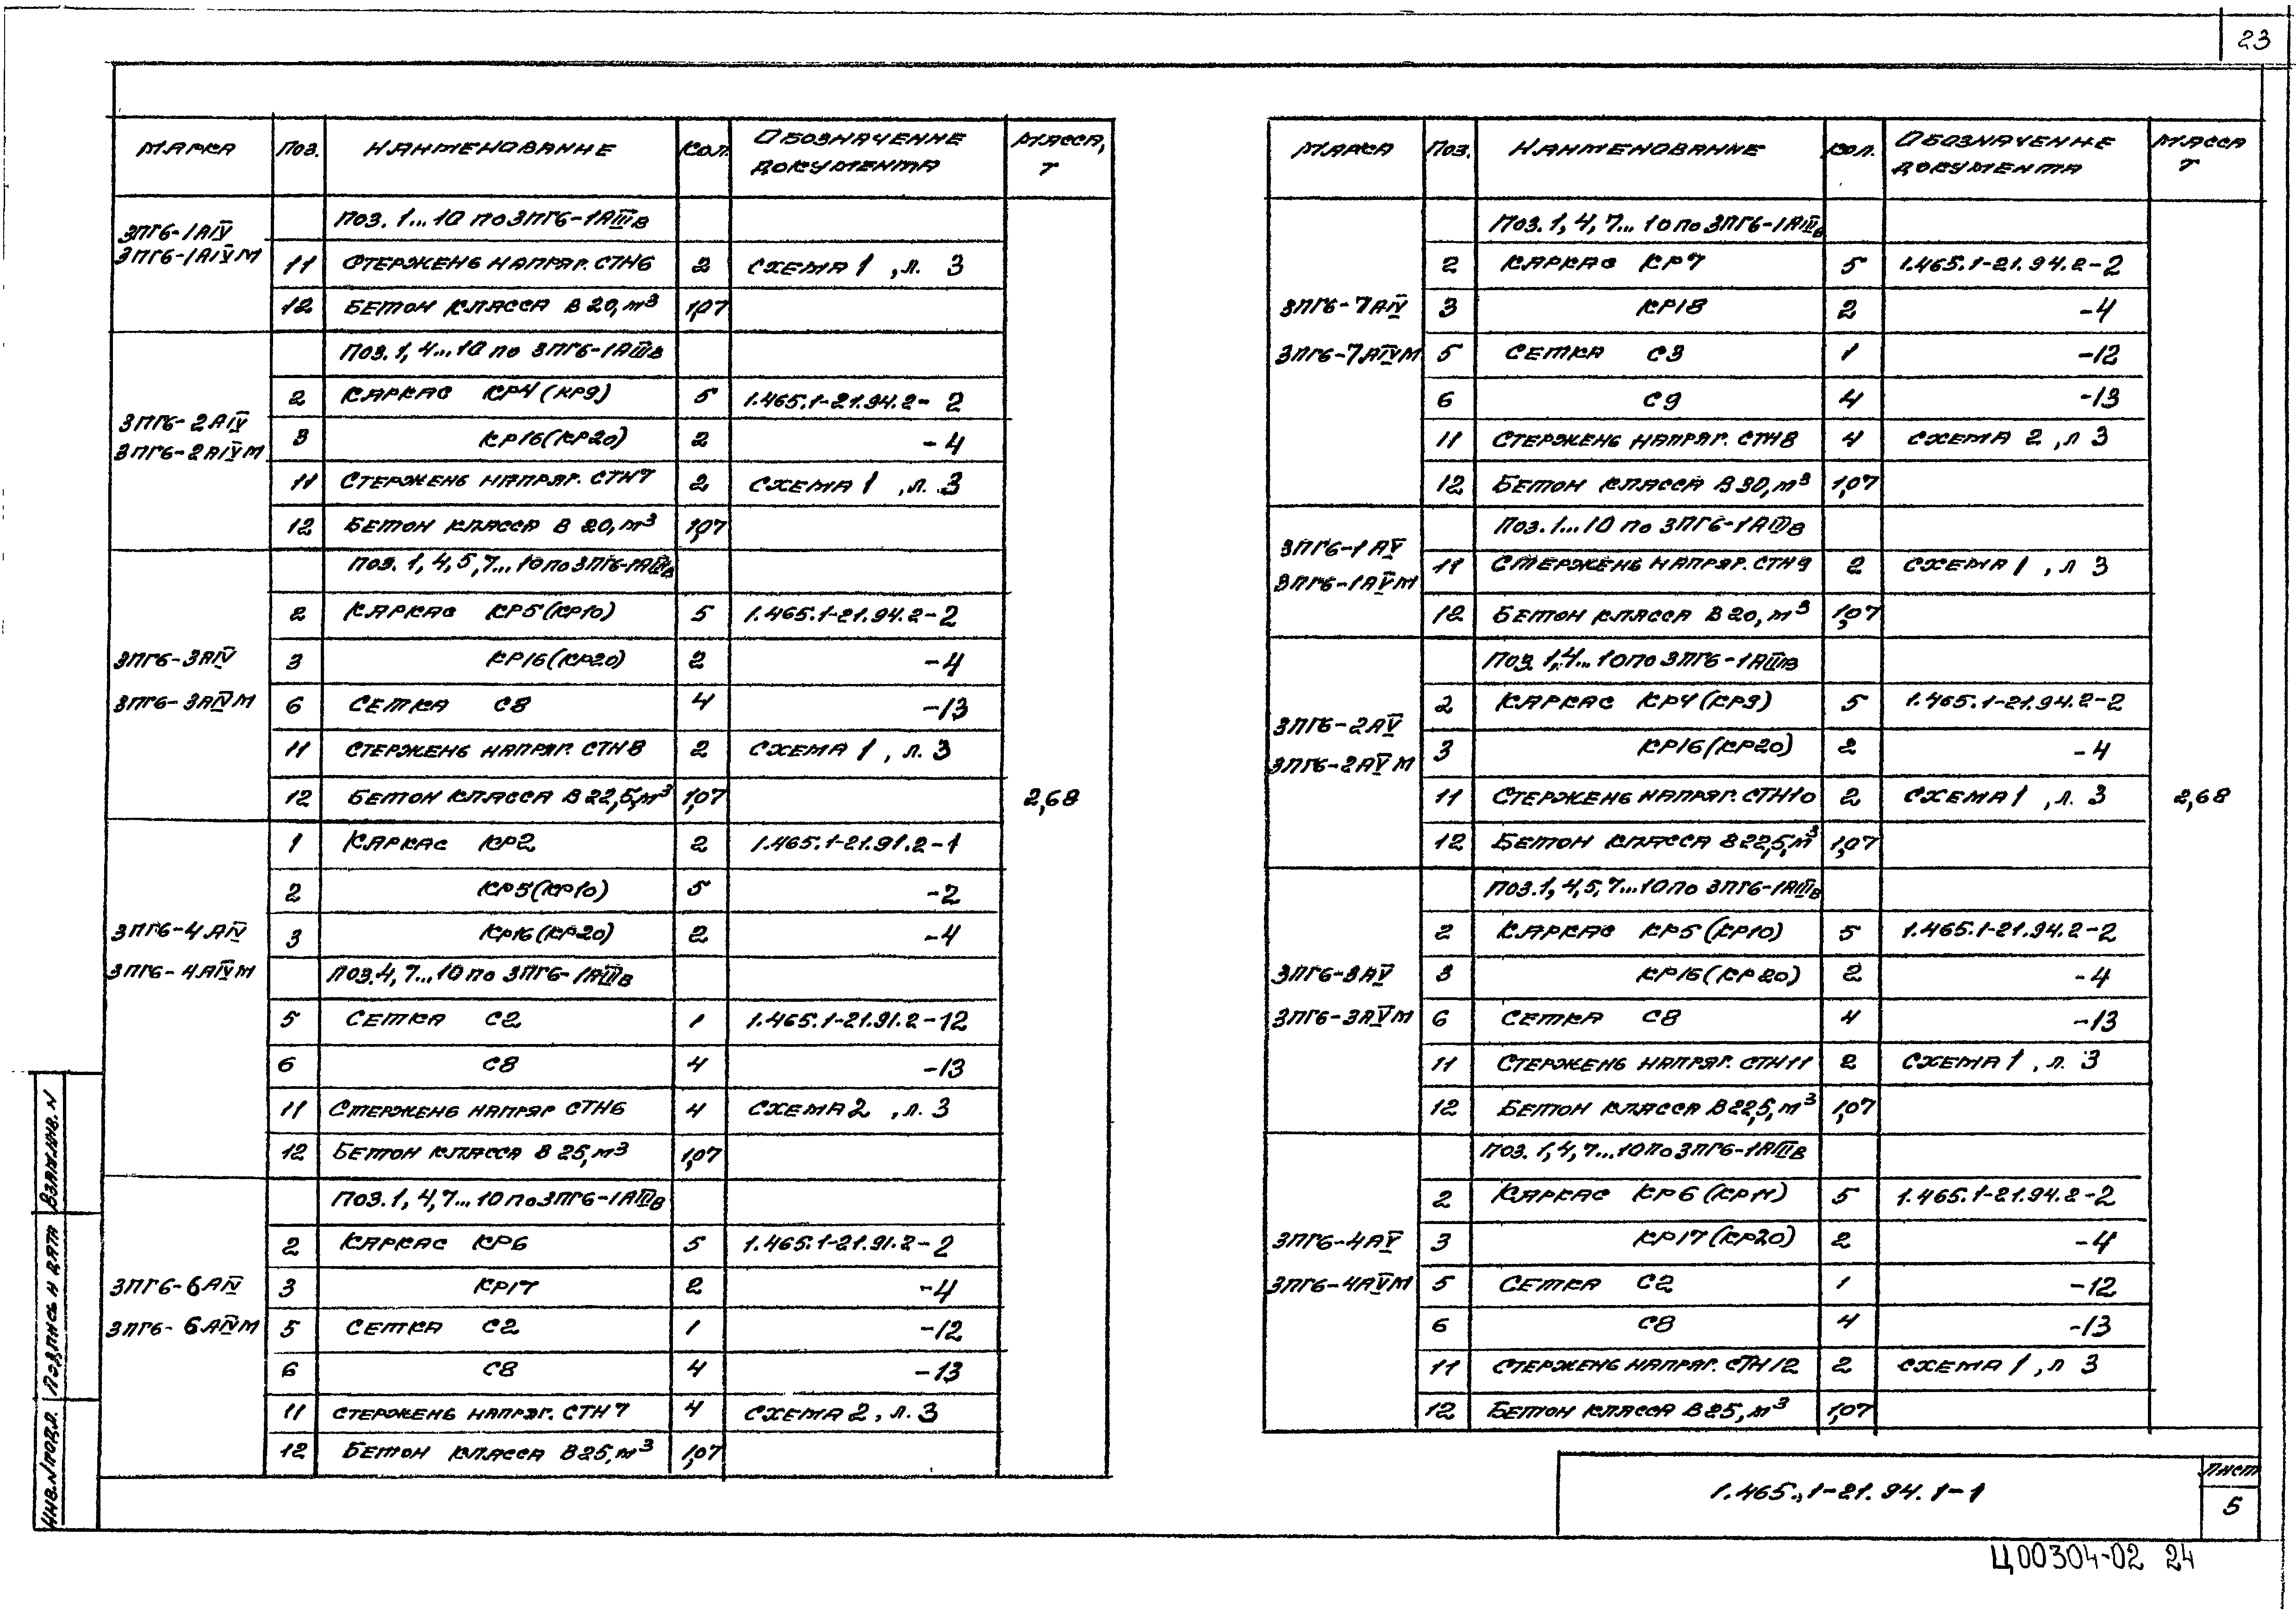 23
МАРКА | ПОЗ. | НАИМЕНОВАНИЕ | КОЛ. | ОБОЗНАЧЕНИЕ ДОКУМЕНТА | МАССА, Т
3ПГ6-1АIV
3ПГ6-1АIVМ
ПОЗ. 1...10 ПО 3ПГ6-1АIIIВ
11 | СТЕРЖЕНЬ НАПРЯГ. СТН6 | 2 | СХЕМА 1, Л. 3
12 | БЕТОН КЛАССА В 20, м³ | 1,07
3ПГ6-2АIV
3ПГ6-2АIVМ
ПОЗ. 1, 4...10 ПО 3ПГ6-1АIIIВ
2 | КАРКАС КР4 (КР9) | 5 | 1.465.1-21.94.2-2
3 | КР16 (КР20) | 2 | -4
11 | СТЕРЖЕНЬ НАПРЯГ. СТН7 | 2 | СХЕМА 1, Л. 3
12 | БЕТОН КЛАССА В 20, м³ | 1,07
3ПГ6-3АIV
3ПГ6-3АIVМ
ПОЗ. 1, 4, 5, 7...10 ПО 3ПГ6-1АIIIВ
2 | КАРКАС КР5 (КР10) | 5 | 1.465.1-21.94.2-2
3 | КР16 (КР20) | 2 | -4
6 | СЕТКА С8 | 4 | -13
11 | СТЕРЖЕНЬ НАПРЯГ. СТН8 | 2 | СХЕМА 1, Л. 3
12 | БЕТОН КЛАССА В 22,5, м³ | 1,07
2,68
3ПГ6-4АIV
3ПГ6-4АIVМ
1 | КАРКАС КР2 | 2 | 1.465.1-21.91.2-1
2 | КР5 (КР10) | 5 | -2
3 | КР16 (КР20) | 2 | -4
ПОЗ. 4, 7...10 ПО 3ПГ6-1АIIIВ
5 | СЕТКА С2 | 1 | 1.465.1-21.91.2-12
6 | С8 | 4 | -13
11 | СТЕРЖЕНЬ НАПРЯГ СТН6 | 4 | СХЕМА 2, Л. 3
12 | БЕТОН КЛАССА В 25, м³ | 1,07
3ПГ6-6АIV
3ПГ6-6АIVМ
ПОЗ. 1, 4, 7...10 ПО 3ПГ6-1АIIIВ
2 | КАРКАС КР6 | 5 | 1.465.1-21.91.2-2
3 | КР17 | 2 | -4
5 | СЕТКА С2 | 1 | -12
6 | С8 | 4 | -13
11 | СТЕРЖЕНЬ НАПРЯГ. СТН7 | 4 | СХЕМА 2, Л. 3
12 | БЕТОН КЛАССА В25, м³ | 1,07
МАРКА | ПОЗ. | НАИМЕНОВАНИЕ | КОЛ. | ОБОЗНАЧЕНИЕ ДОКУМЕНТА | МАССА Т
3ПГ6-7АIV
3ПГ6-7АIVМ
ПОЗ. 1, 4, 7...10 ПО 3ПГ6-1АIIIВ
2 | КАРКАС КР7 | 5 | 1.465.1-21.94.2-2
3 | КР18 | 2 | -4
5 | СЕТКА С3 | 1 | -12
6 | С9 | 4 | -13
11 | СТЕРЖЕНЬ НАПРЯГ. СТН8 | 4 | СХЕМА 2, Л 3
12 | БЕТОН КЛАССА В 30, м³ | 1,07
3ПГ6-1АV
3ПГ6-1АVМ
ПОЗ. 1...10 ПО 3ПГ6-1АIIIВ
11 | СТЕРЖЕНЬ НАПРЯГ. СТН9 | 2 | СХЕМА 1, Л 3
12 | БЕТОН КЛАССА В 20, м³ | 1,07
3ПГ6-2АV
3ПГ6-2АVМ
ПОЗ. 1, 4...10 ПО 3ПГ6-1АIIIВ
2 | КАРКАС КР4 (КР9) | 5 | 1.465.1-21.94.2-2
3 | КР16 (КР20) | 2 | -4
11 | СТЕРЖЕНЬ НАПРЯГ. СТН10 | 2 | СХЕМА 1, Л. 3
12 | БЕТОН КЛАССА В 22,5, м³ | 1,07
2,68
3ПГ6-3АV
3ПГ6-3АVМ
ПОЗ. 1, 4, 5, 7...10 ПО 3ПГ6-1АIIIВ
2 | КАРКАС КР5 (КР10) | 5 | 1.465.1-21.94.2-2
3 | КР16 (КР20) | 2 | -4
6 | СЕТКА С8 | 4 | -13
11 | СТЕРЖЕНЬ НАПРЯГ. СТН11 | 2 | СХЕМА 1, Л. 3
12 | БЕТОН КЛАССА В 22,5, м³ | 1,07
3ПГ6-4АV
3ПГ6-4АVМ
ПОЗ. 1, 4, 7...10 ПО 3ПГ6-1АIIIВ
2 | КАРКАС КР6 (КР11) | 5 | 1.465.1-21.94.2-2
3 | КР17 (КР20) | 2 | -4
5 | СЕТКА С2 | 1 | -12
6 | С8 | 4 | -13
11 | СТЕРЖЕНЬ НАПРЯГ. СТН12 | 2 | СХЕМА 1, Л 3
12 | БЕТОН КЛАССА В25, м³ | 1,07
ИНВ. N ПОДЛ. | ПОДПИСЬ И ДАТА | ВЗАМ. ИНВ. N
1.465.1-21.94.1-1
ЛИСТ
5
Ц00304-02 24